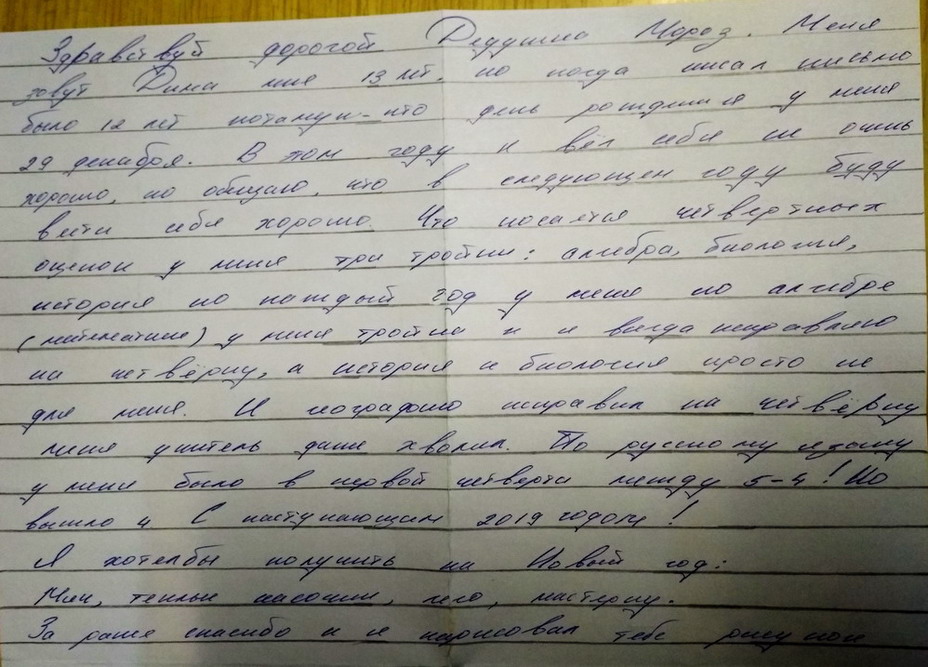 Здравствуй дорогой Дедушка Мороз. Меня
зовут Дима мне 13 лет. но когда писал письмо
было 12 лет потамуч-что день рождения у меня
29 декабря. В том году я вёл себя не очень
хорошо, но обищаю, что в следующем году буду
вести себя хорошо. Что косается четвертных
оценок у меня три тройки: алгебра, биология,
история но каждый год у меня по алгебре
(математике) у меня тройка и я всегда исправляю
на четвёрку, а история и биология просто не
для меня. И географию исправил на четвёрку
меня учитель даже хвалил. По русскому языку
у меня было в первой четверти между 5-4! Но
вышло 4 С наступающим 2019 годом!
Я хотелбы получить на Новый год:
Мяч, теплые , лего, мастерку.
За ранее спасибо и я нарисовал тебе рисунок